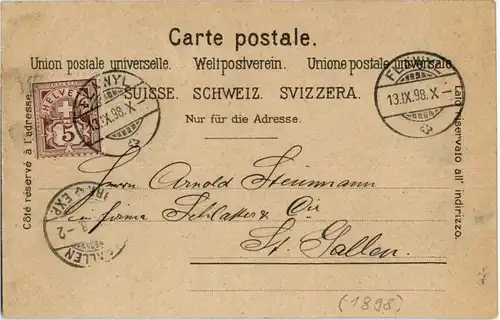 Carte postale.
Union postale universelle. Weltpostverein. Unione postale universale.
SUISSE. SCHWEIZ. SVIZZERA.
Nur für die Adresse.
Côté réservé à l'adresse.
Lato riservato all indirizzo.
HELVETIA
5
FLAWYL
13.IX.98.X
FLAWYL
13.IX.98.X–
Herrn Arnold Steinmann
in Firma Schlatter & Cie
St. Gallen.
BR. V. EXP.
GALLEN
(1898)